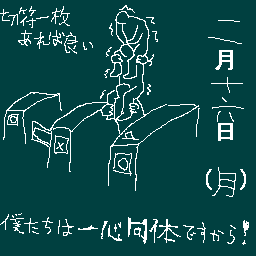 切符一枚
あれば良い
二月十六日(月)
僕たちは一心同体ですから!